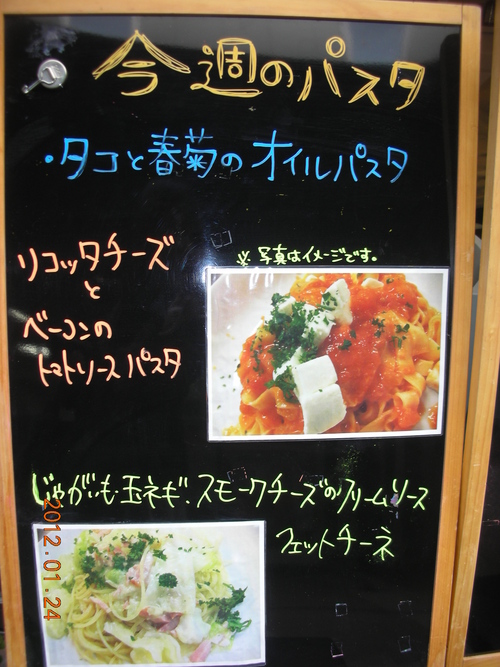 今週のパスタ
・タコと春菊のオイルパスタ
リコッタチーズ
と
ベーコンの
トマトソースパスタ
※写真はイメージです。
じゃがいも玉ネギ、スモークチーズのクリームソース
フェットチーネ
2012.01.24